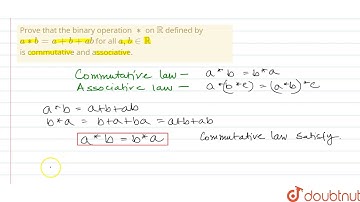 Prove that the binary operation * on ℝ defined by
a * b = a + b + ab for all a, b ∈ ℝ
is commutative and associative.
Commutative law – a * b = b * a
Associative law – a * (b * c) = (a * b) * c
a * b = a + b + ab
b * a = b + a + ba = a + b + ab
a * b = b * a Commutative law satisfy
doubtnut